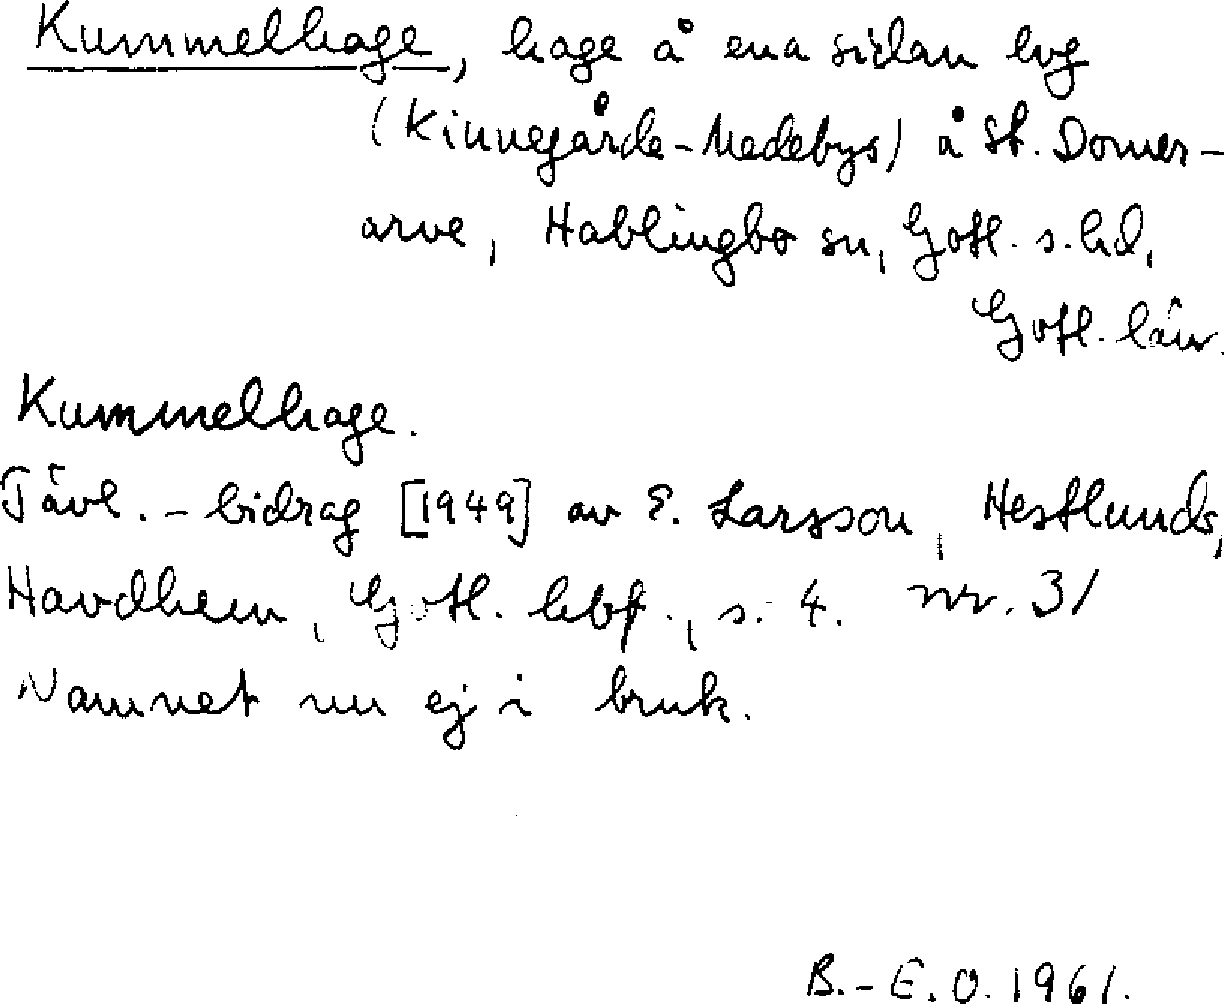 Kummelhage, hage å ena sidan lvg
(Kinnegårde-Medebys) å St. Domer-
arve, Hablingbo sn, Gotl. s. hd,
Gotl. län.
Kummelhage.
Tävl.-bidrag [1949] av E. Larsson, Hestlunds,
Havdhem, Gotl. hbf., s. 4. nr. 31
Namnet nu ej i bruk.
B.-E.O. 1961.